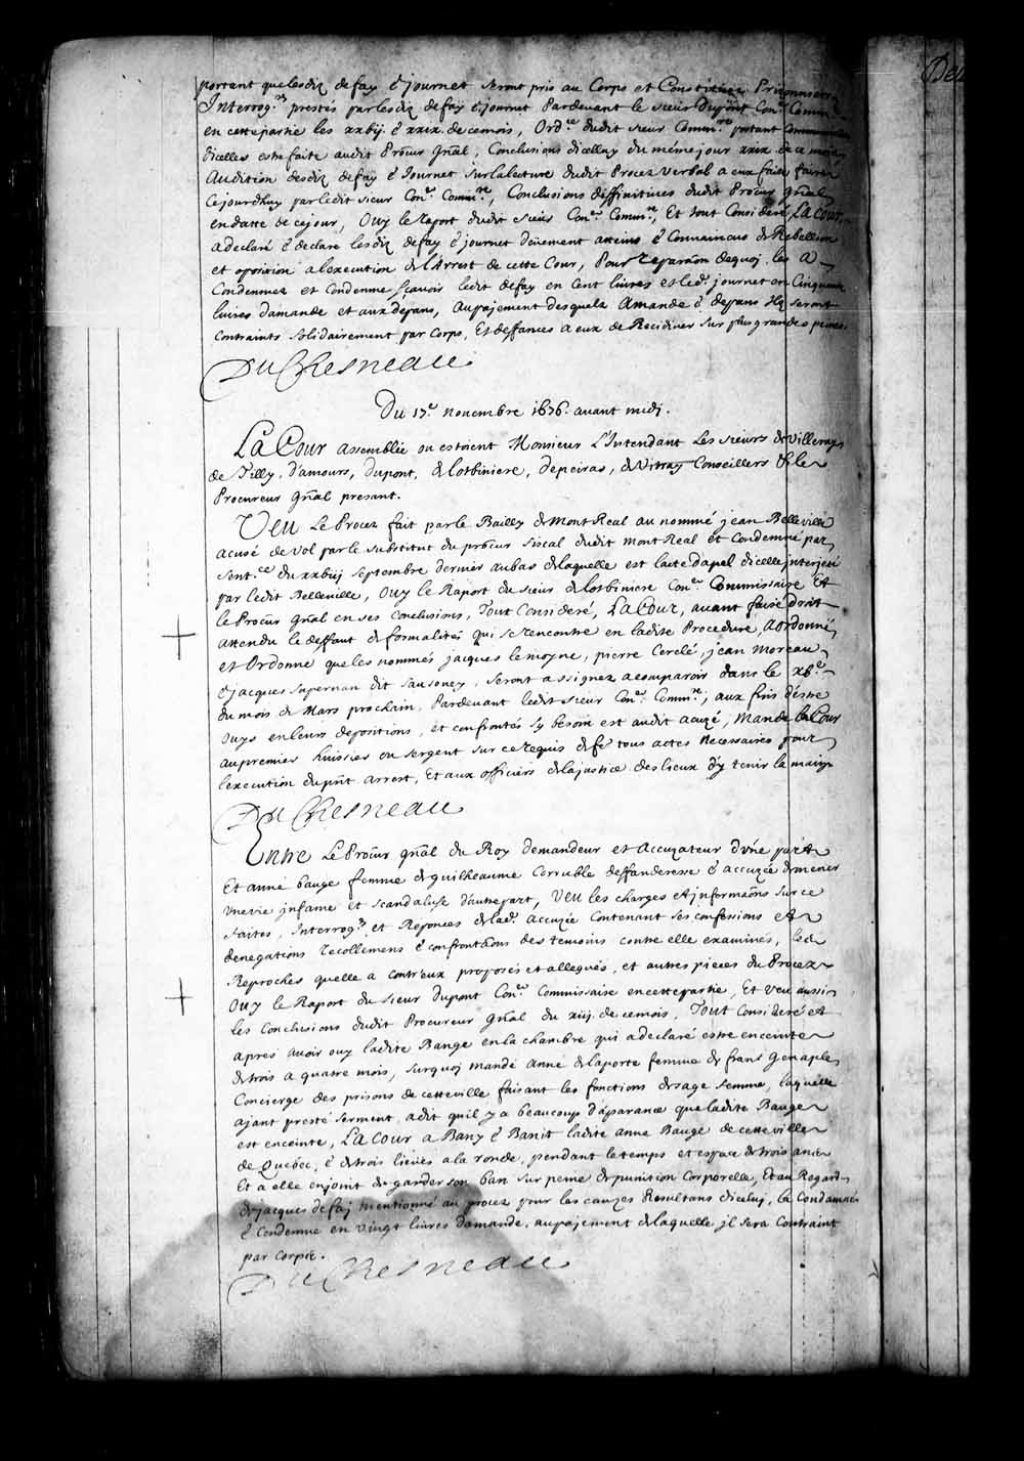 portent que lesdiz defay & journet seront pris au Corps et Constituez Prisonniers
Interrog.res prestés par lesdiz defay & journet Pardevant le sieur Dupont Con.er Comm.re
en cette partie les xxbij & xxix de ce mois, Ord.ce dudit sieur Comm.re portant Communicaon
dicelles estre faite audit Procur gnal, Conclusions dicelluy du même jour xxix de ce mois
Audition desdiz defay & Journet sur la lecture dudit Procez verbal a eux faite faire
cejourdhuy par ledit sieur Con.er Comm.re, Conclusions diffinitives dudit Procur gnal
en datte de ce jour, Ouy le Raport dudit sieur Con.er Comm.re, Et tout Consideré, La Cour
a declaré & declare lesdiz defay & journet deüement atteins & Convaincus de Rebellion
et oposition a l'execution de l'Arrest de cette Cour, Pour reparaon dequoy les a
Condemnez et Condemne sçavoir ledit defay en Cent livres et led. journet en Cinquante
livres damande et aux dépans, Au payement desquelz Amande & depans Ilz seront
contraints solidairement par Corps, Et deffances a eux de Recidiver sur plus grandes peines
DuChesneau
Du 17.e novembre 1676. avant midi.
La Cour assemblée ou estoient Monsieur L'Intendant Les sieurs de Villeray
de Tilly, d'amours, dupont, de Lotbiniere, depeiras, de Vitray Conseillers & le
Procureur gnal presant.
Veu Le Procez fait par le Bailly de Mont Real au nommé jean Belleville
acusé de vol par le substitut du procur fiscal dudit mont Real et Condemné par
sent.ce du xxbiij septembre dernier au bas de laquelle est l'acte dapel dicelle interjeté
par ledit Belleville, Ouy le Raport du sieur de Lotbiniere Con.er Commissaire Et
le Procur gnal en ses conclusions, Tout Consideré, La Cour, avant faire droit
attendu le deffaut de formalités qui se rencontre en ladite Procedure, A ordonné
et Ordonne que les nommés jacques le moyne, pierre Cerelé, jean Moreau
& jacques supernan dit sansoucy, seront assignez a comparoir dans le xb.e
du mois de Mars prochain, Pardevant ledit sieur Con.er Comm.re, aux fins d'estre
ouys en leurs depositions, et confrontés sy besoin est audit acuzé, Mande la Cour
au premier huissier ou sergent sur ce requis de fe tous actes necessaires pour
l'execution du prnt arrest, Et aux officiers de la justice des lieux d'y tenir la main
DuChesneau
Entre Le Procur gnal du Roy demandeur et Accuzateur d'une part
Et anne bauge femme de guilheaume Corruble deffanderesse & accuzée de mener
une vie infame et scandaluse d'autre part, Veu les charges et informaons sur ce
faites, Interrog.re et Reponces de lad. accuzée Contenant ses confessions et
denegations recollemens & confrontaons des temoins contre elle examinés, les
Reproches quelle a contr'eux proposés et allegués, et autres pieces du Procez
Ouy le Raport du sieur dupont Con.er Commissaire en cette partie, Et Veu aussi
les conclusions dudit Procureur gnal du xiij de ce mois, Tout Consideré et
apres avoir ouy ladite Bauge en la chambre qui a declaré estre enceinte
de trois a quatre mois, surquoy mandé Anne de la porte femme de frans genaple
Concierge des prisons de cette ville faisant les fonctions de sage femme, laquelle
ajant presté serment a dit qu'il y a beaucoup d'aparance que ladite Bauge
est enceinte, La Cour a Bany & Banit ladite anne Bauge de cette ville
de Quebec, & de trois lieües a la ronde, pendant le temps et espace de trois ans
Et a elle enjoint de garder son ban sur peine de punition Corporelle, Et au Regard
de jacques de faj mentionné au procez pour les cauzes Resultans diceluj, la Condamné
& Condemne en vingt livres damande, au pajement de laquelle jl sera Contraint
par Corps.
DuChesneau